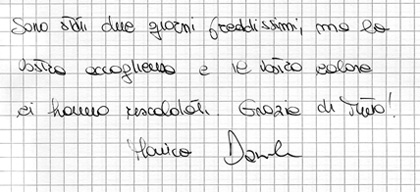 Sono stati due giorni freddissimi, ma la
vostra accoglienza e il vostro calore
ci hanno riscaldati. Grazie di tutto!